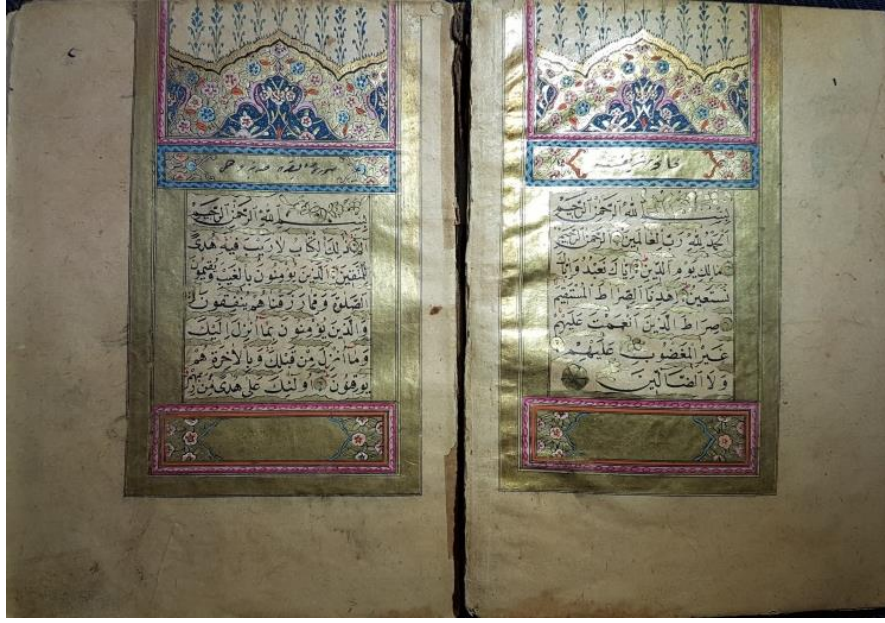 بِسْمِ اللهِ الرَّحْمٰنِ الرَّحِيمِ
اَلْحَمْدُ لِلّٰهِ رَبِّ الْعَالَمِينَ الرَّحْمٰنِ الرَّحِيمِ
مَالِكِ يَوْمِ الدِّينِ اِيَّاكَ نَعْبُدُ وَاِيَّاكَ
نَسْتَعِينُ اِهْدِنَا الصِّرَاطَ الْمُسْتَقِيمَ
صِرَاطَ الَّذِينَ اَنْعَمْتَ عَلَيْهِمْ
غَيْرِ الْمَغْضُوبِ عَلَيْهِمْ
وَلَا الضَّالِّينَ
سورة البقرة
بِسْمِ اللهِ الرَّحْمٰنِ الرَّحِيمِ
الم ذٰلِكَ الْكِتَابُ لَا رَيْبَ فِيهِ هُدًى
لِلْمُتَّقِينَ اَلَّذِينَ يُؤْمِنُونَ بِالْغَيْبِ وَيُقِيمُونَ
الصَّلٰوةَ وَمِمَّا رَزَقْنَاهُمْ يُنْفِقُونَ
وَالَّذِينَ يُؤْمِنُونَ بِمَا اُنْزِلَ اِلَيْكَ
وَمَا اُنْزِلَ مِنْ قَبْلِكَ وَبِالْاٰخِرَةِ هُمْ
يُوقِنُونَ اُولٰئِكَ عَلٰى هُدًى مِنْ رَبِّهِمْ